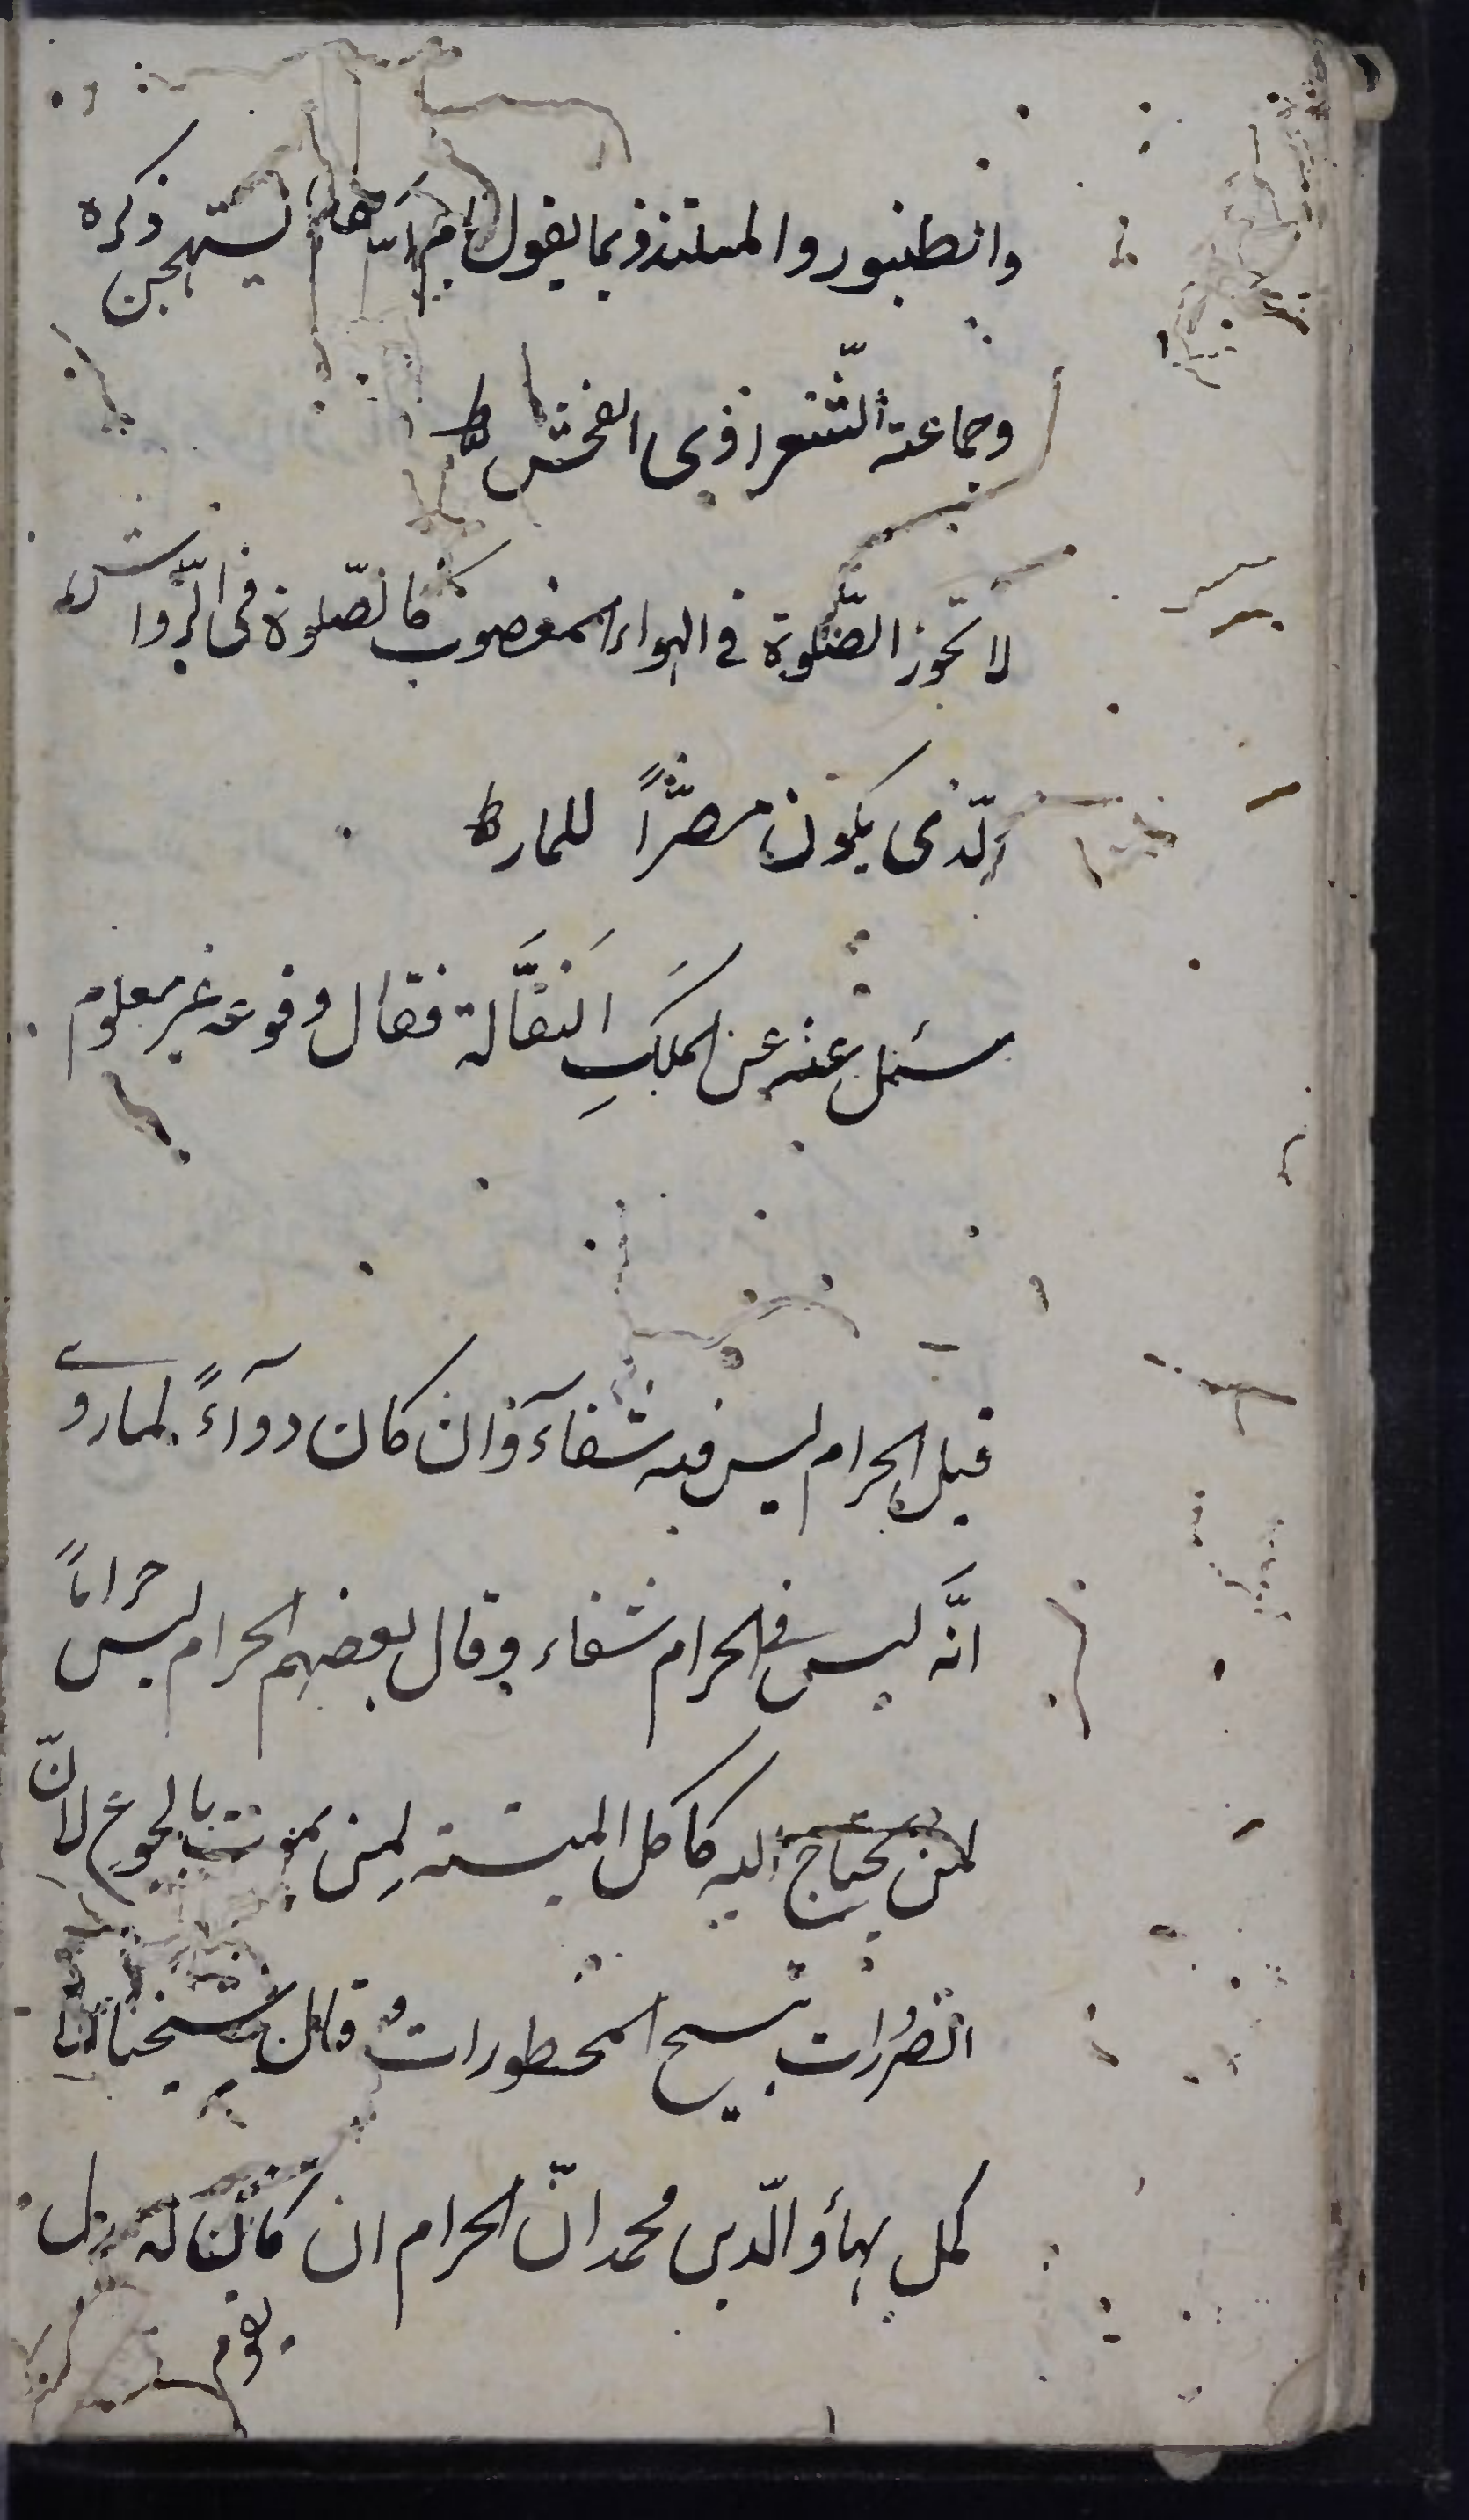 والطنبور والمستذ وبما يقول يستهجن ذكره
وجماعة الشعر اذى الفحش ط
لا تجوز الصّلوة فى الهواء المغصوب كالصّلوة فى الرّواشن
الّذى يكون مضرّاً للمار ط
سئل عنه عن الملكِ النقَّالة فقال وقوعه غير معلوم
قيل الحرام ليس فيه شفآء وان كان دوآءً لما روى
انَّه ليس فى الحرام شفاء وقال بعضهم الحرام ليس حراماً
لمن يحتاج اليه كاكل الميتة لمن يموت بالجوع لانّ
الضرُورات تبيح المحظورات قال شيخنا
كمل بهاؤ الّدين محمد انّ الحرام ان كان له بدل
يقوم